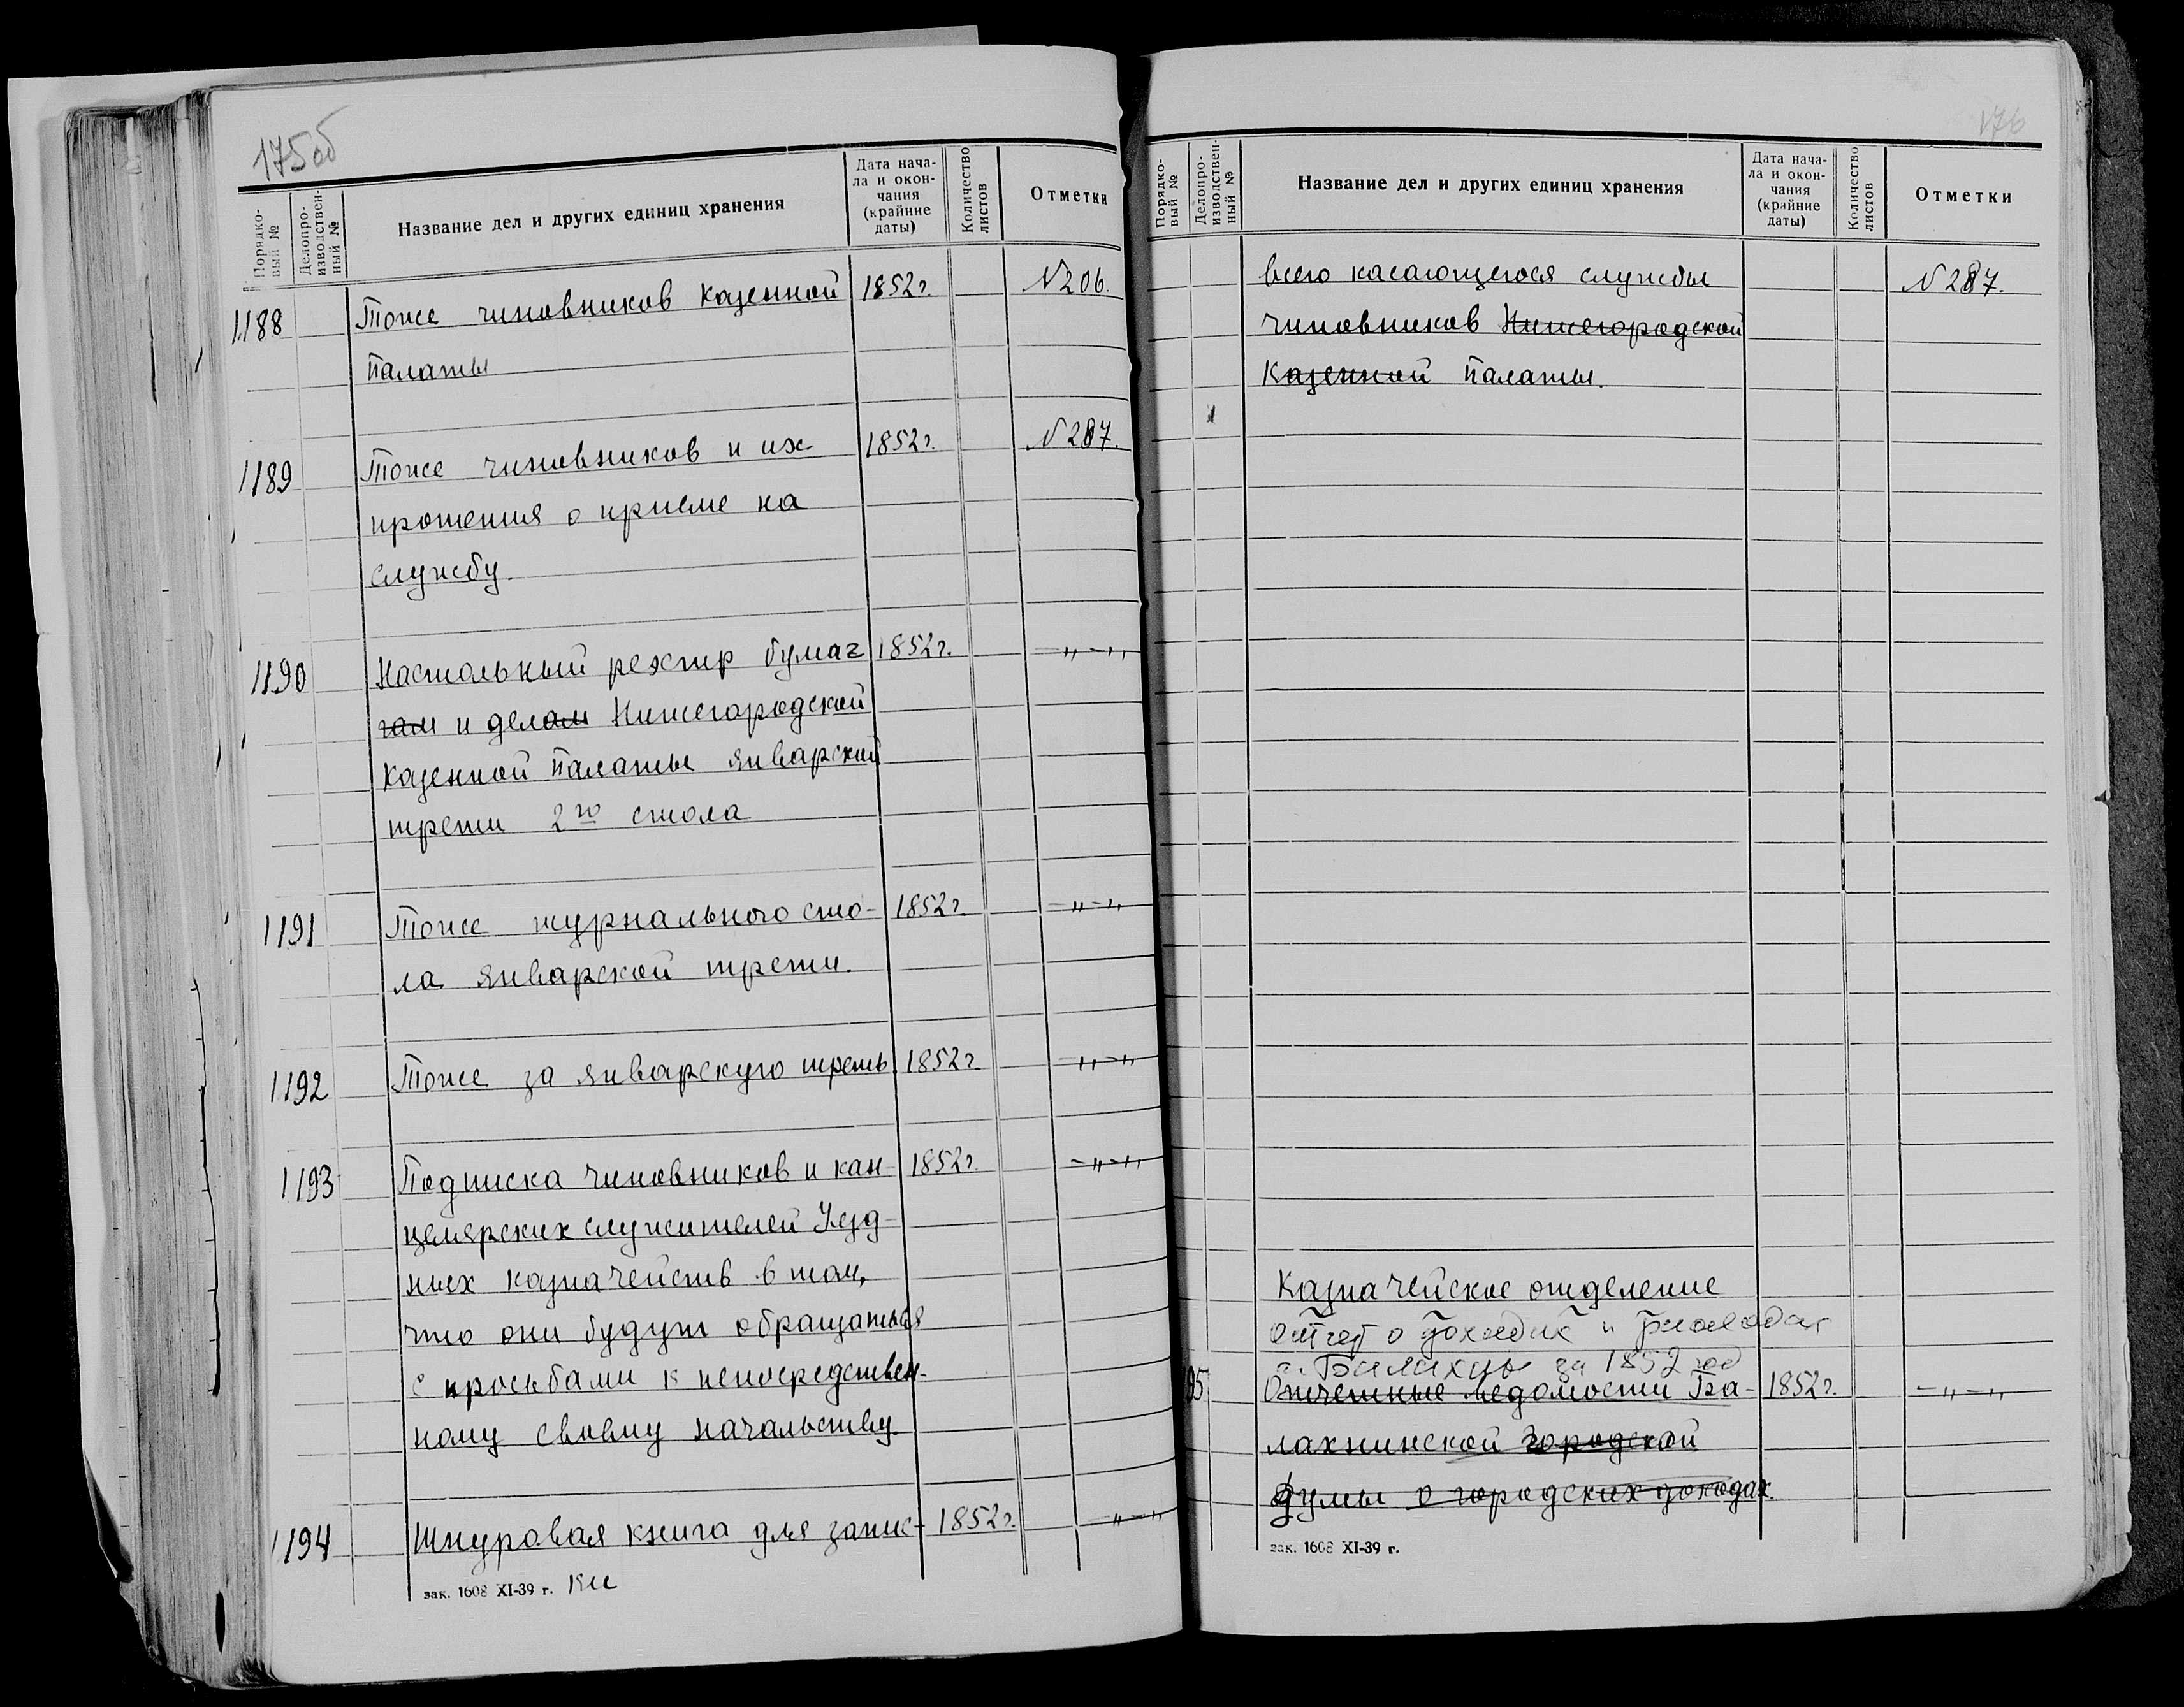 175об
Порядко-
вый №
Делопро-
изводствен-
ный №
Название дел и других единиц хранения
Дата нача-
ла и окон-
чания
(крайние
даты)
Количество
листов
Отметки
1188 Тоже чиновников казенной 1852г. N206.
палаты
1189 Тоже чиновников и их 1852г. N287.
прошения о приеме на
службу.
1190 Настольный реэстр бумаг 1852г. -„-„
гам и делам Нижегородской
Казенной палаты январской
трети 2го стола
1191 Тоже журнального сто- 1852г. -„-„
ла январской трети.
1192 Тоже за январскую треть 1852г. -„-„
1193 Подписка чиновников и кан- 1852г. -„-„
целярских служителей Уезд-
ных казначейств в том,
что они будут обращаться
с просьбами к непосредствен-
ному своему начальству.
1194 Шнуровая книга для запис- 1852г. -„-„
зак. 1608 XI-39 г. ки
176
Порядко-
вый №
Делопро-
изводствен-
ный №
Название дел и других единиц хранения
Дата нача-
ла и окон-
чания
(крайние
даты)
Количество
листов
Отметки
всего касающегося службы N287.
чиновников Нижегородской
Казенной палаты.
Казначейское отделение
Отчет о доходах и расходах
г. Балахны за 1852 год
95 Отчетные ведомости Ба- 1852г. -„-„
лахнинской городской
думы о городских доходах.
зак. 1608 XI-39 г.